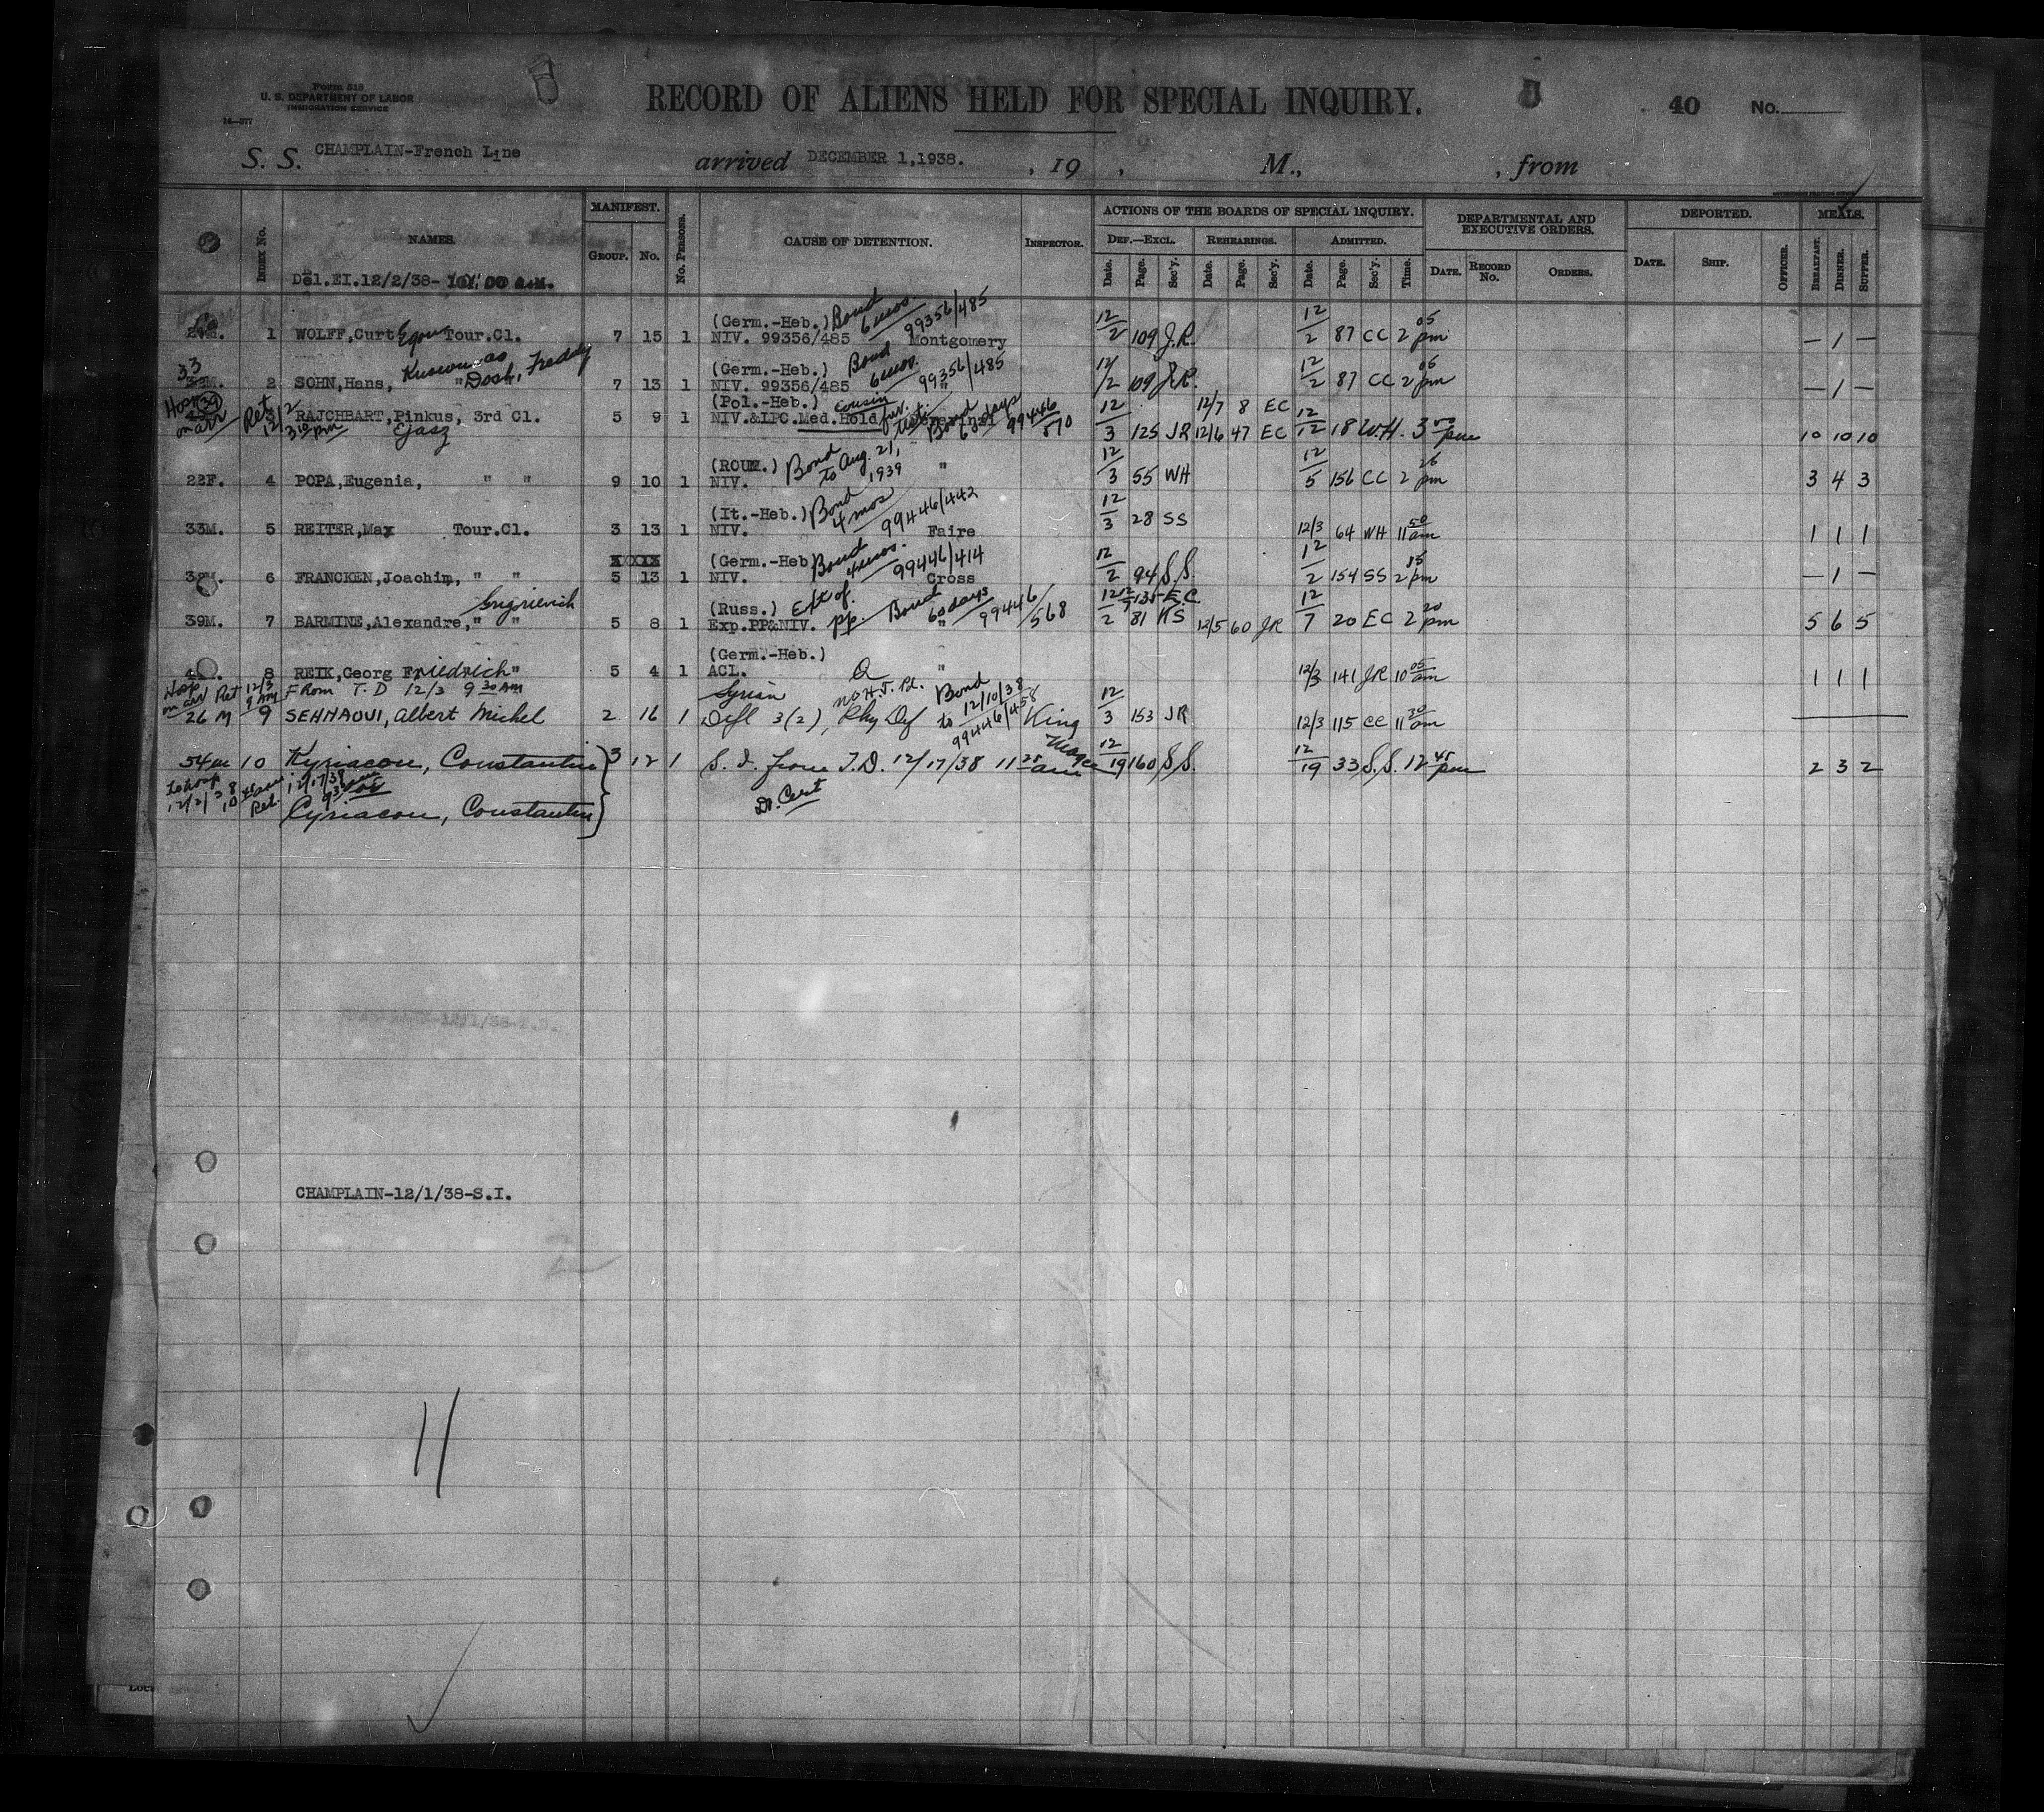 Form 518
U. S. DEPARTMENT OF LABOR
IMMIGRATION SERVICE
14—377
RECORD OF ALIENS HELD FOR SPECIAL INQUIRY.
40 No.
S. S. CHAMPLAIN-French Line arrived DECEMBER 1,1938. , 19 , M., , from
INDEX No. NAMES. MANIFEST. GROUP. No. No. PERSONS. CAUSE OF DETENTION. INSPECTOR. ACTIONS OF THE BOARDS OF SPECIAL INQUIRY. DEF.—EXCL. Date. Page. Sec'y. REHEARINGS. Date. Page. Sec'y. ADMITTED. Date. Page. Sec'y. Time. DEPARTMENTAL AND EXECUTIVE ORDERS. DATE. RECORD No. ORDERS. DEPORTED. DATE. SHIP. OFFICER. MEALS. BREAKFAST. DINNER. SUPPER.
Del.EI.12/2/38- A.M.
(Germ.-Heb.) Bond 6 mos 99356/485
1 WOLFF,Curt Egon Tour.Cl. 7 15 1 NIV. 99356/485 Montgomery 12/2 109 J.R. 12/2 87 CC 2 05 pm — 1 —
33 Known as (Germ.-Heb.) Bond 6 mos. 99356/485
2 SOHN,Hans, " Dosh, Freddy 7 13 1 NIV. 99356/485 " 12/2 109 J.R. 12/2 87 CC 2 05 pm — 1 —
Hosp on arr Ret 12/2 3 10 pm (Pol.-Heb.) cousin Bond 60 days 99446/870 12/7 8 EC
3 RAJCHBART,Pinkus, 3rd Cl. 5 9 1 NIV.&LPC.Med.Hold 12/3 125 JR 12/6 47 EC 12/12 18 W.H. 3 pm 10 10 10
Ejasz
(ROUM.) Bond to Aug. 21, 1939
22F. 4 POPA,Eugenia, " " 9 10 1 NIV. " 12/3 55 WH 12/5 156 CC 2 26 pm 3 4 3
(It.-Heb.) Bond 4 mos 99446/442
33M. 5 REITER,Max Tour.Cl. 3 13 1 NIV. Faire 12/3 28 SS 12/3 64 WH 11 50 am 1 1 1
XXXXX (Germ.-Heb Bond 4 mos. 99446/414
6 FRANCKEN,Joachim, " " 5 13 1 NIV. Cross 12/2 94 S.S. 12/2 154 SS 2 15 pm — 1 —
Grigorievich (Russ.) Ext of pp. Bond 60 days 99446/568 12/7 135 E.C.
39M. 7 BARMINE,Alexandre," " 5 8 1 Exp.PP&NIV. " 12/2 81 KS 12/5 60 JR 12/7 20 EC 2 20 pm 5 6 5
(Germ.-Heb.)
8 REIK,Georg Friedrich" 5 4 1 ACL. " 12/3 141 JR 10 05 am 1 1 1
Hosp on arr Ret 12/3 9 AM FRom T.D 12/3 9 30 AM Syrian Bond to 12/10/38 99446/458
26 M 9 SEHNAOUI, Albert Michel 2 16 1 Defl 3(2), Phy Def King 12/3 153 JR 12/3 115 CC 11 30 am
54m 10 Kyriacou, Constantin 3 12 1 S.I. from T.D. 12/17/38 11 25 am 12/19 160 S.S. 12/19 33 S.S. 12 45 pm 2 3 2
To Hosp 12/2/38 10 am Ret. 12/17/38 9 30 am Dr. Cert
Cyriacou, Constantin
CHAMPLAIN-12/1/38-S.I.
11